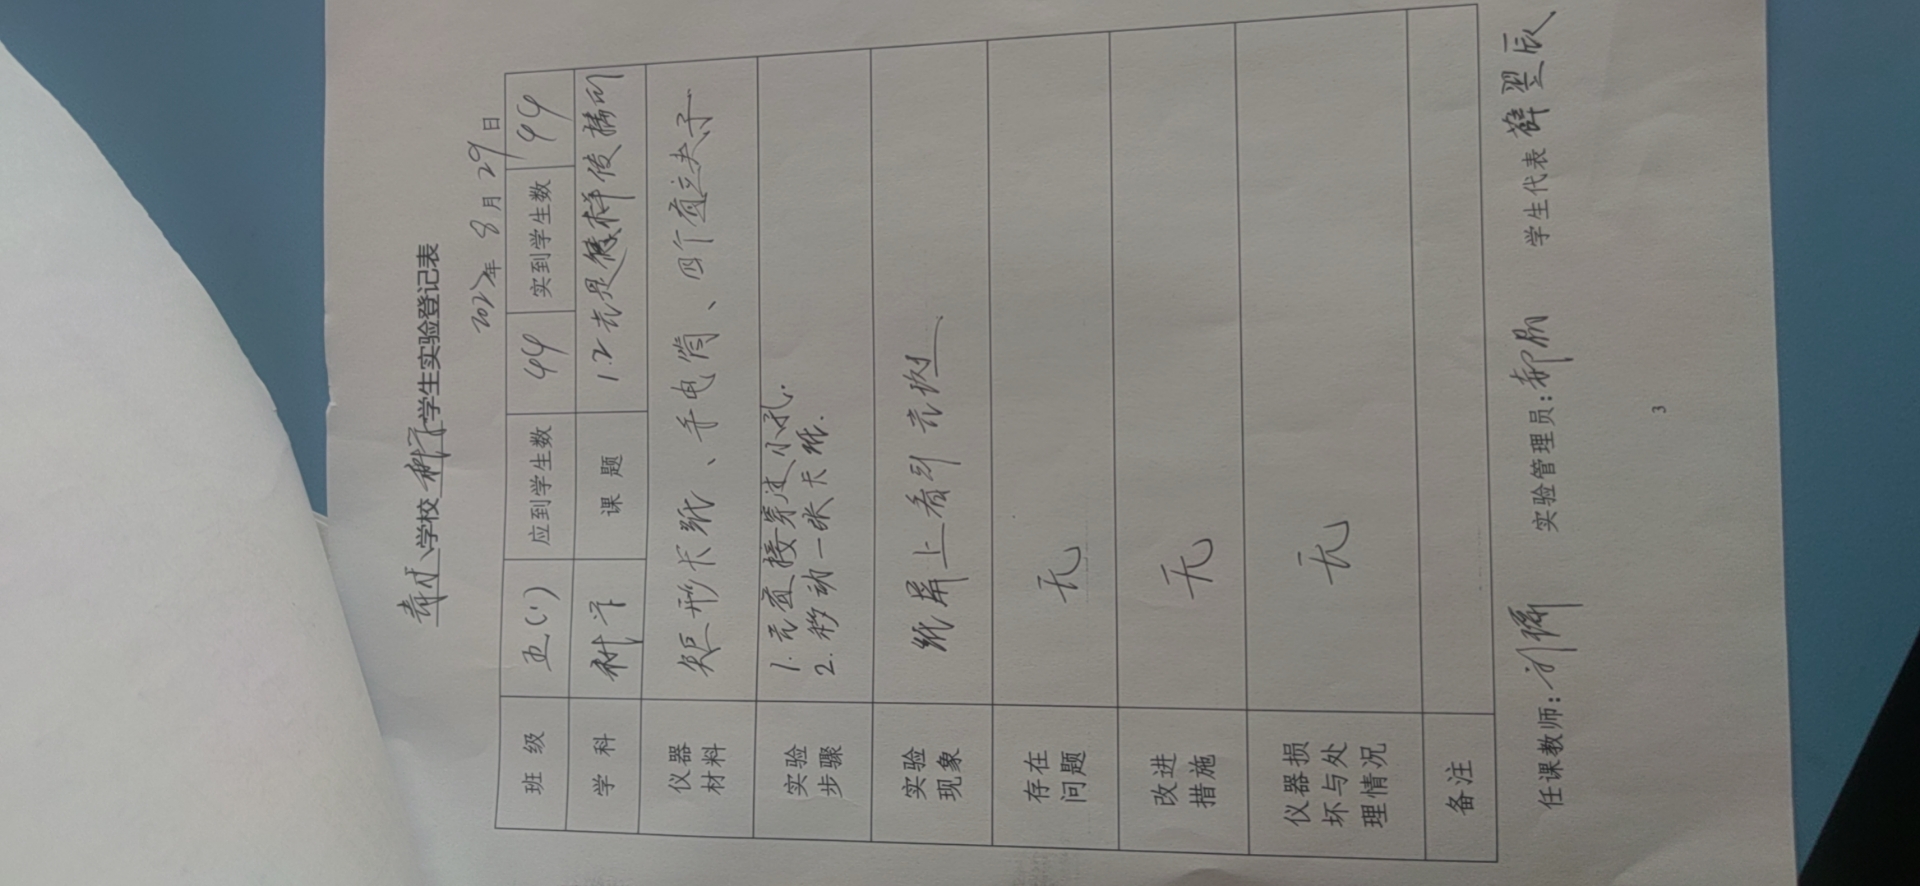 学校科学学生实验登记表
2022年8月29日
班级 五(1) 应到学生数 44 实到学生数 44
学科 科学 课题 1.2光是怎样传播的
仪器材料 矩形卡纸、手电筒、四个直立夹子
实验步骤 1.光直接穿过小孔.
2.移动一张卡纸.
实验现象 纸屏上看到光
存在问题 无
改进措施 无
仪器损坏与处理情况 无
备注
任课教师: 实验管理员: 学生代表 薛翌辰
3